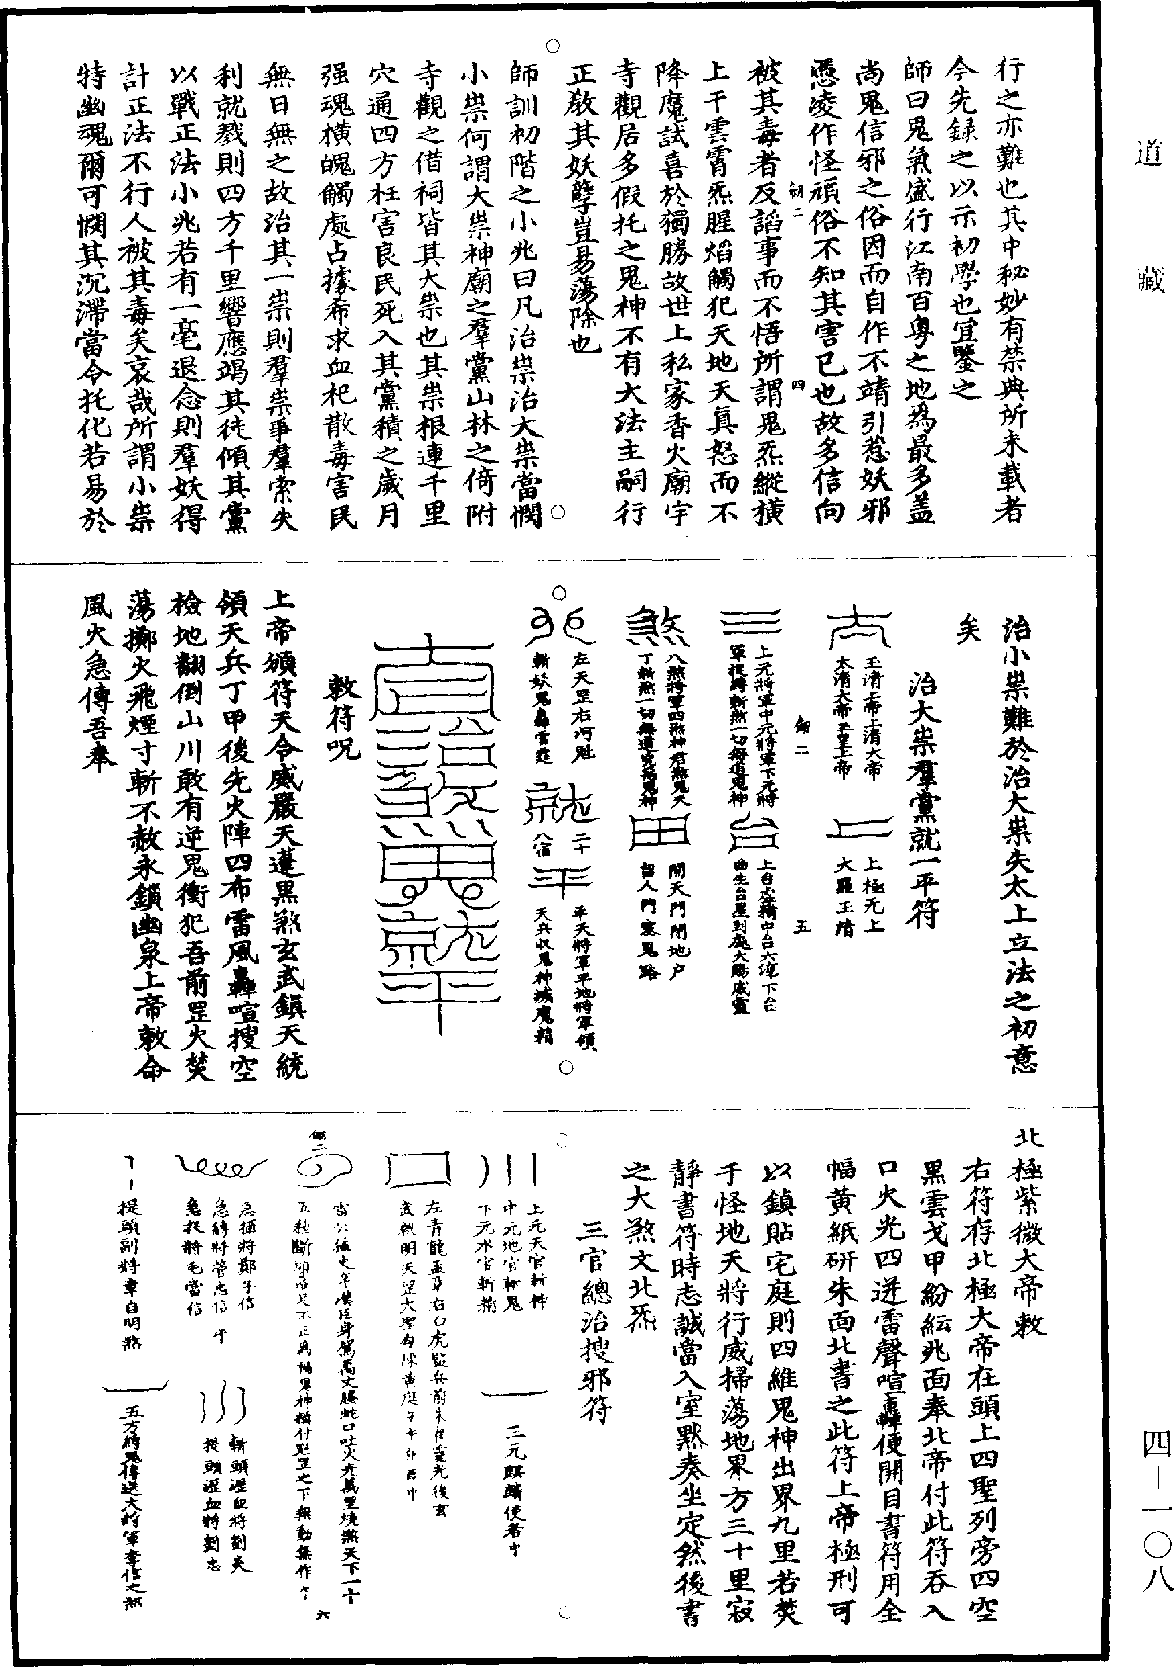 道藏
四—一〇八
行之亦難也其中秘妙有禁典所未載者
今先錄之以示初學也宜鑒之
師曰鬼氣盛行江南百粤之地為最多蓋
尚鬼信邪之俗因而自作不靖引惹妖邪
憑凌作怪頑俗不知其害已也故多信向
被其毒者及謟事而不悟所謂鬼炁縱橫
上干雲霄炁腥焰觸犯天地天真怒而不
降魔試喜於獨勝故世上私家香火廟宇
寺觀居多假托之鬼神不有大法主嗣行
正教其妖孽豈易蕩除也
師訓初階之小兆曰凡治祟治大祟當憫
小祟何謂大祟神廟之羣黨山林之倚附
寺觀之借祠皆其大祟也其祟根連千里
穴通四方枉害良民死入其黨積之歲月
强魂橫魄觸處占據希求血祀散毒害民
無日無之故治其一祟則羣祟爭羣索失
利就戮則四方千里響應竭其徒傾其黨
以戰正法小兆若有一毫退念則羣妖得
計正法不行人被其毒矣哀哉所謂小祟
特幽魂爾可憫其沉滯當令托化若易於
治小祟難於治大祟失太上立法之初意
矣
治大祟羣黨就一平符
玉清上帝上清大帝
太清大帝玉皇上帝
上極无上
大羅玉清
上元將軍中元將軍下元將
軍捉縛斬煞一切無道鬼神
上台虛精中台六淳下台
曲生台星到處大賜威靈
八煞將軍四煞神君煞鬼天
丁斬煞一切無道鬼神
開天門閉地户
留人門塞鬼路
左天罡右河魁
斬妖鬼轟雷霆
二十
八宿
平天將軍平地將軍領
天兵收鬼神滅魔精
敕符呪
上帝頒符天令威嚴天蓬黑煞玄武鎮天統
領天兵丁甲後先火陣四布雷風轟喧搜空
檢地翻倒山川敢有逆鬼衝犯吾前罡火焚
蕩擲火飛煙寸斬不赦永鎖幽泉上帝敕命
風火急傳吾奉
北極紫微大帝敕
右符存北極大帝在頭上四聖列旁四空
黑雲戈甲紛紜兆面奉北帝付此符吞入
口火光四迸雷聲喧轟便開目書符用全
幅黃紙研朱面北書之此符上帝極刑可
以鎮貼宅庭則四維鬼神出界九里若焚
于怪地天將行威掃蕩地界方三十里寂
靜書符時志誠當入室默奏坐定然後書
之大煞文北炁
三官總治搜邪符
上元天官斬邪
中元地官斬鬼
下元水官斬
三元麒麟使者
左青龍孟章右白虎監兵前朱雀陵光後玄
武執明天罡大聖
急捕將鄭子信
急縛將管忠信
急捉將毛當信
斬頭瀝血將劉天
捉頭瀝血將劉忠
捉頭副將韋自明煞
五方將鬼傳送大將軍李信之煞